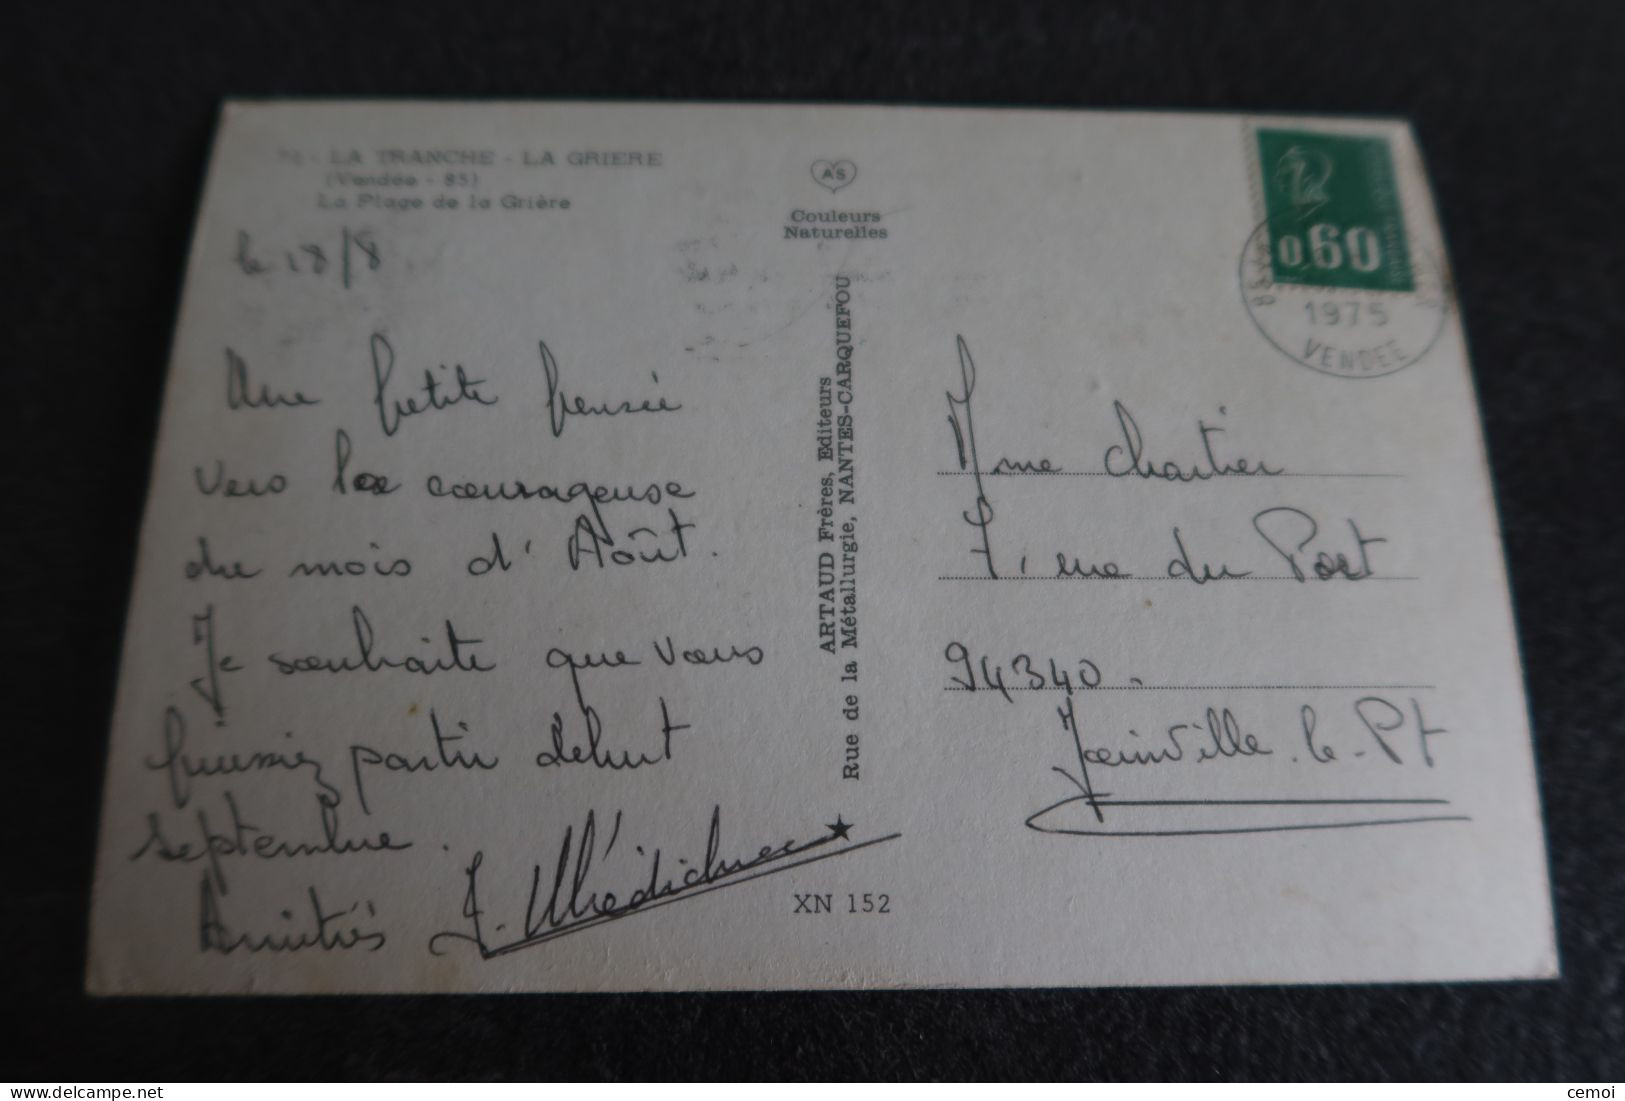 LA TRANCHE - LA GRIERE
(Vendée - 85)
La Plage de la Grière
le 18/8
Une petite pensée
vers la courageuse
du mois d'Août.
Je souhaite que vous
puissiez partir début
septembre.
Amitiés
AS
Couleurs
Naturelles
ARTAUD Frères, Editeurs
Rue de la Métallurgie, NANTES-CARQUEFOU
XN 152
0,60
1975
VENDEE
Mme Chartier
7, rue du Port
94340.
Joinville-le-Pt
delcampe.net
cemoi